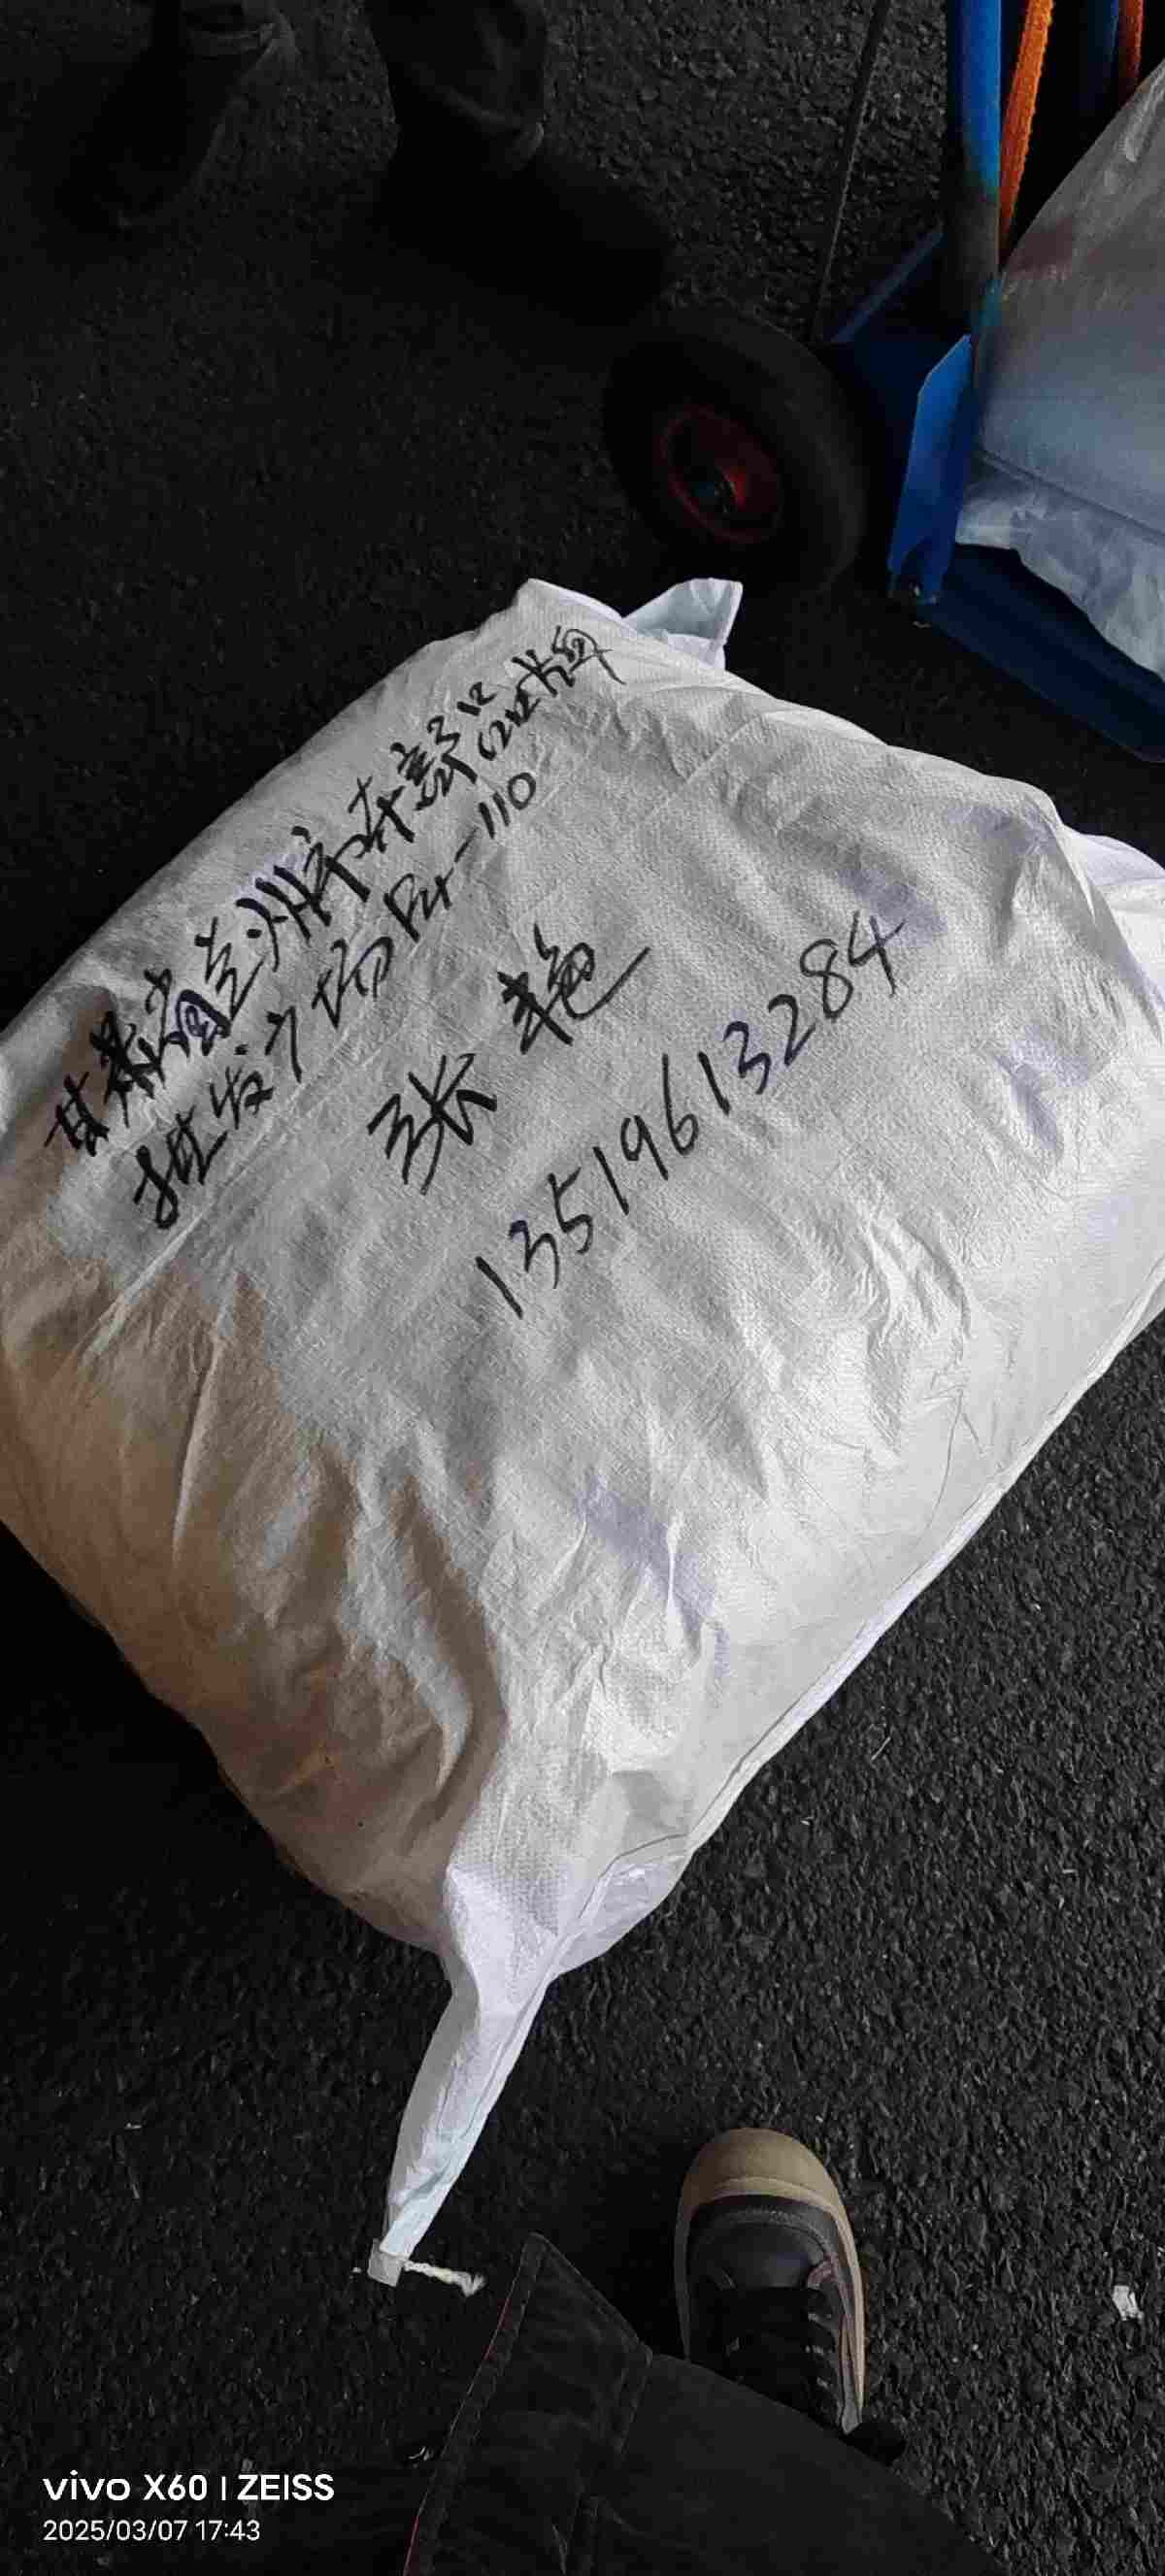 甘肃省兰州市东部
批发广场F4-110
张艳
13519613284
vivo X60 | ZEISS
2025/03/07 17:43